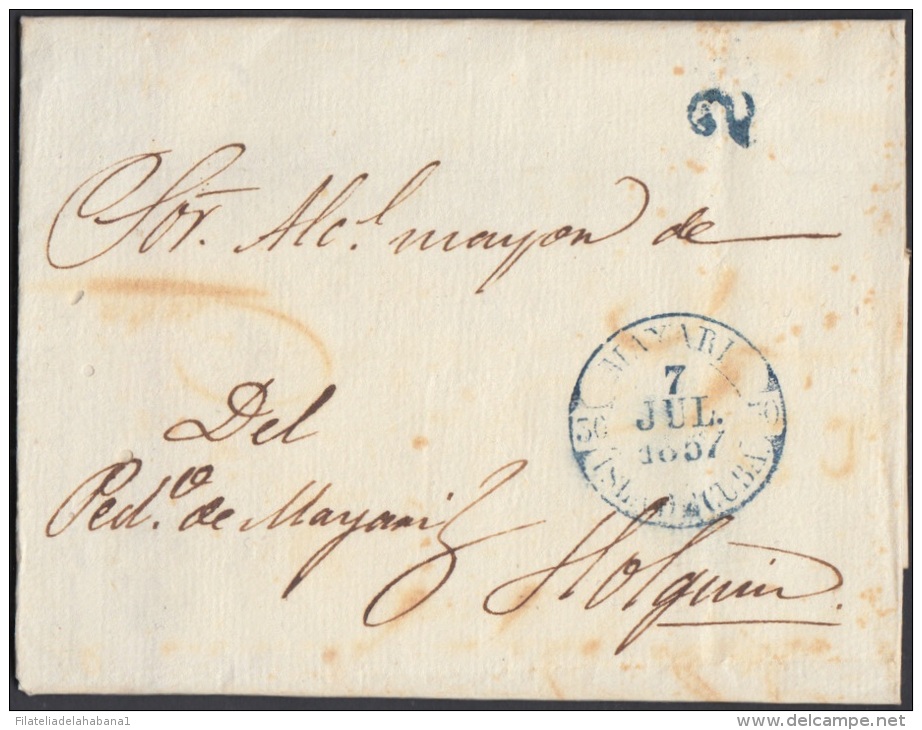 2
Sōr. Alc.l mayor de
MAYARI
7
JUL.
1857
ISLA DE CUBA
Del
Ped.o de Mayari
Holguin.
Filateliadelahabana1
www.delcampe.net